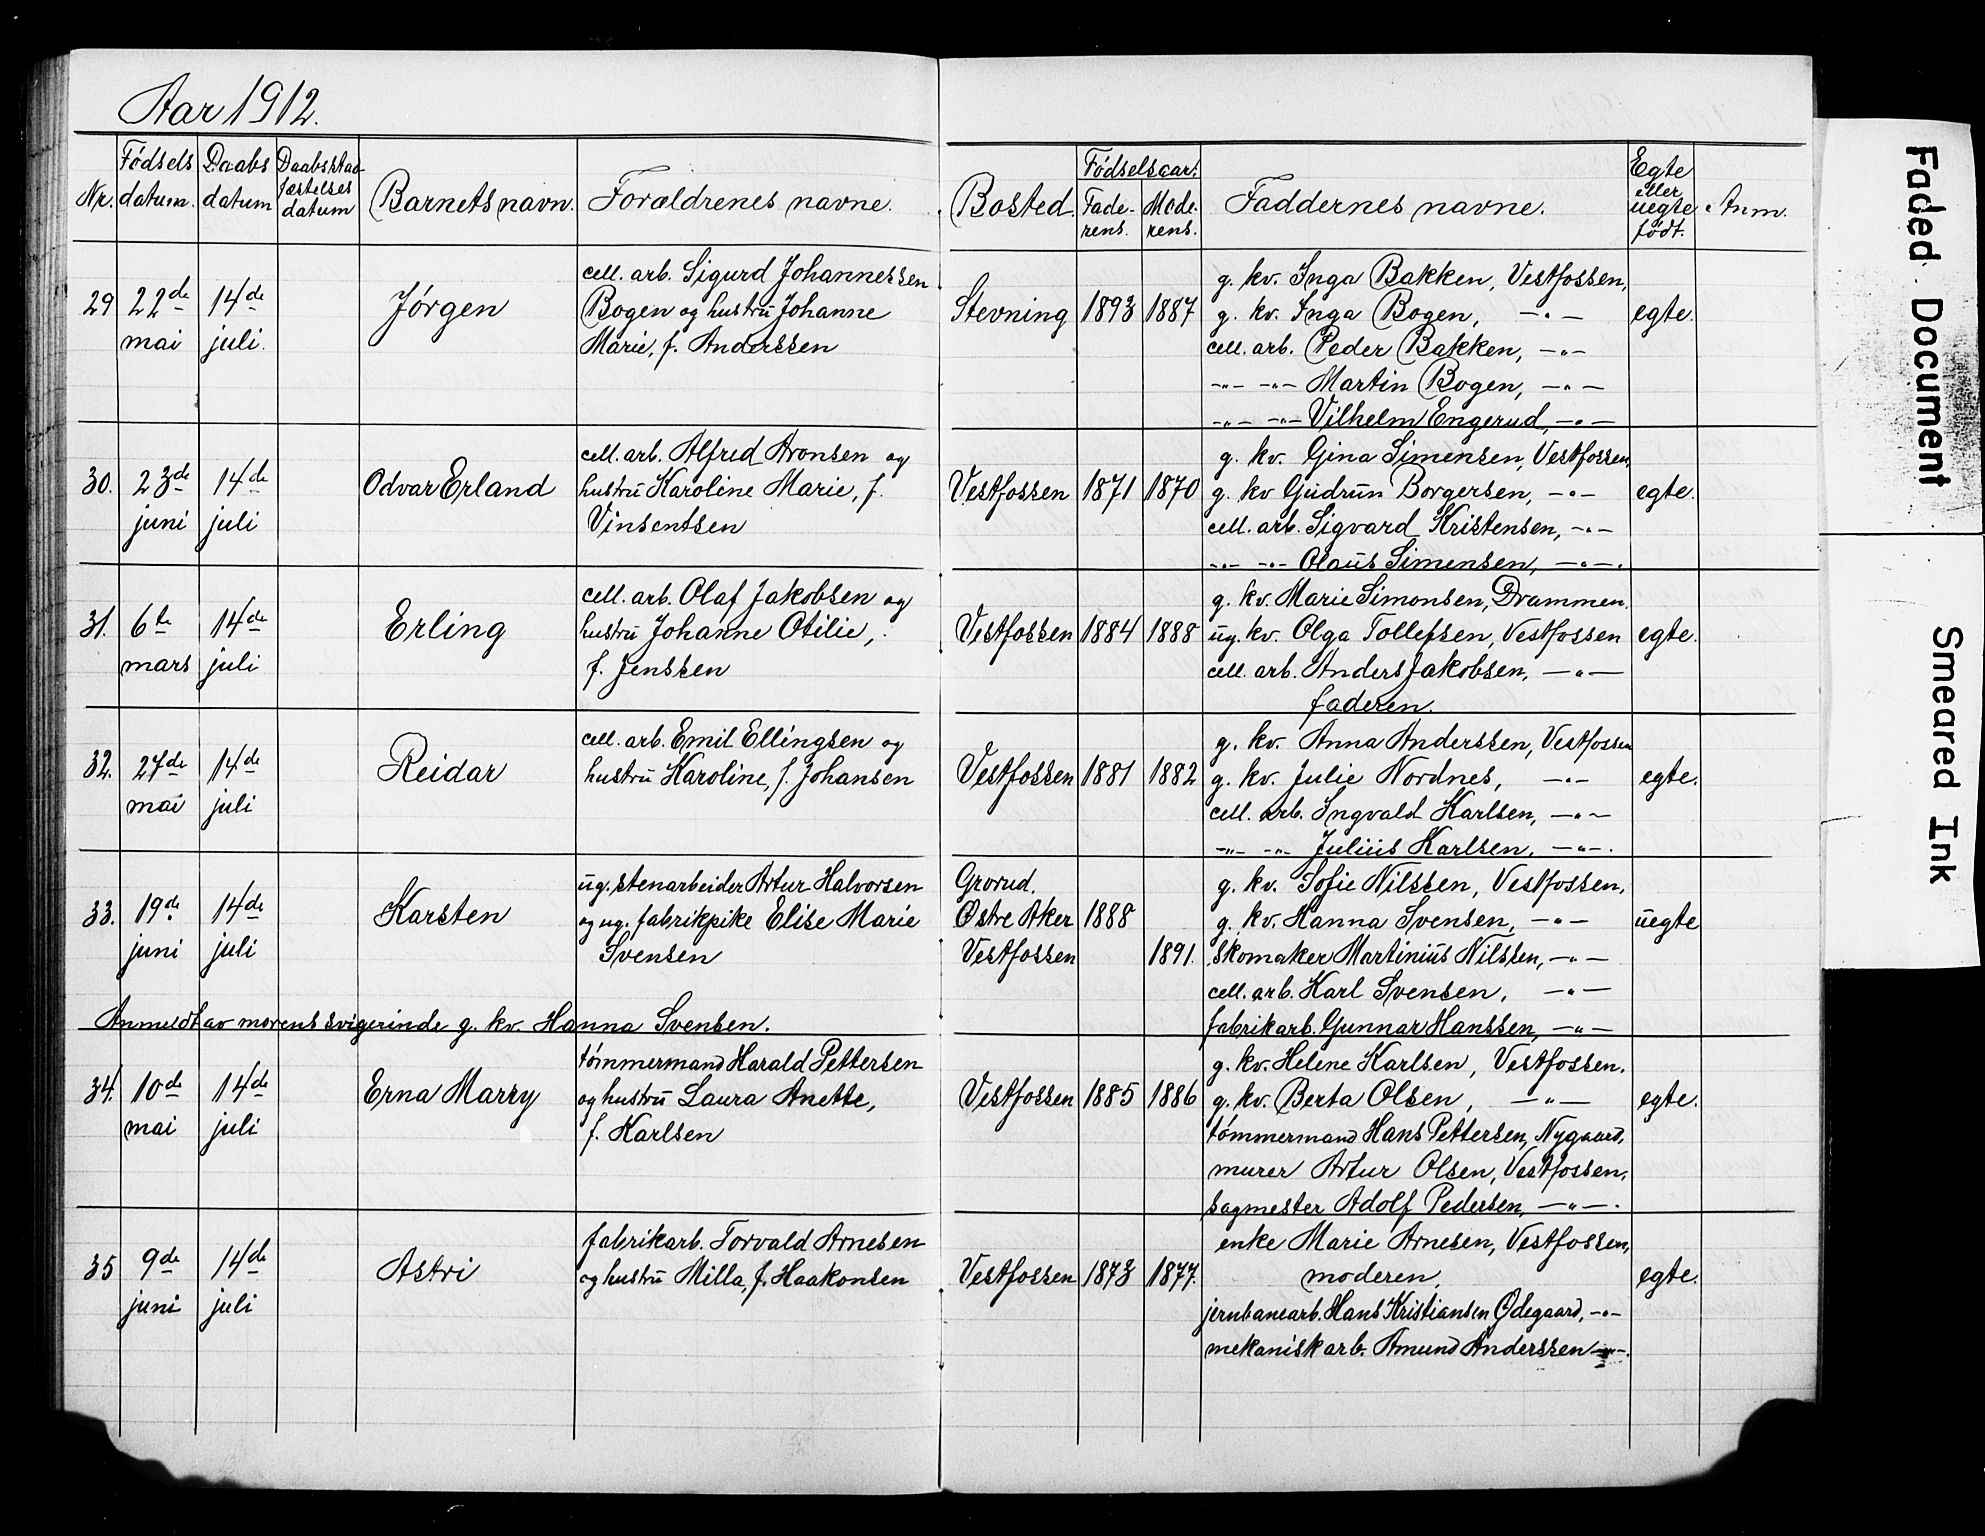 Aar 1912.
Nr. Fødsels datum. Daabs datum Daabsstadfæstelses datum Barnets navn. Forældrenes navne. Bosted. Fødselsaar: Faderens. Moderens. Faddernes navne. Egte eller uegte født. Anm.
29 22de mai 14de juli. Jørgen
cell. arb. Sigurd Johannessen
Bogen og hustru Johanne
Marie, f. Anderssen
Stevning 1893 1887
g. kv. Inga Bakken, Vestfossen,
g. kv. Inga Bogen, —"—
cell. arb. Peder Bakken, —"—
—"— —"— Martin Bogen, —"—
—"— —"— Vilhelm Engerud, —"—
egte.
30. 23de juni 14de juli Odvar Erland
cell. arb. Alfred Aronsen og
hustru Karoline Marie, f.
Vinsentsen
Vestfossen 1871 1870
g. kv. Gina Simensen, Vestfossen,
g. kv Gudrun Borgersen, —"—
cell. arb. Sigvard Kristensen, —"—
—"— —"— Olaus Simensen, —"—.
egte.
31. 6te mars 14de juli Erling
cell. arb. Olaf Jakobsen og
hustru Johanne Otilie,
f. Jenssen
Vestfossen 1884 1888
g. kv. Marie Simonsen, Drammen.
ug. kv. Olga Tollefsen, Vestfossen
cell. arb. Anders Jakobsen, —"—
faderen.
egte.
32. 27de mai 14de juli Reidar
cell. arb. Emil Ellingsen og
hustru Karoline, f. Johansen
Vestfossen 1881 1882
g. kv. Anna Anderssen, Vestfossen
g. kv. Julie Nordnes, —"—
cell. arb. Ingvald Karlsen, —"—
—"— —"— Julius Karlsen, —"—.
egte.
33. 19de juni 14de juli Karsten
ug. stenarbeider Artur Halvorsen
og ug. fabrikpike Elise Marie
Svensen
Grorud.
Østre Aker 1888
Vestfossen 1891.
g. kv. Sofie Nilssen, Vestfossen,
g. kv. Hanna Svensen, —"—
skomaker Martinius Nilssen, —"—
cell. arb. Karl Svensen, —"—
fabrikarb. Gunnar Hanssen, —"—
uegte
Anmeldt av morens svigerinde g. kv. Hanna Svensen.
34. 10de mai 14de juli Erna Marry
tømmermand Harald Pettersen
og hustru Laura Anette,
f. Karlsen
Vestfossen 1885 1886
g. kv. Helene Karlsen, Vestfossen.
g. kv. Berta Olsen, —"—
tømmermand Hans Pettersen, Nygaard,
murer Artur Olsen, Vestfossen,
sagmester Adolf Pedersen, —"—.
egte.
35 9de juni 14de juli Astri
fabrikarb. Torvald Arnesen
og hustru Milla, f. Haakonsen
Vestfossen 1873 1877.
enke Marie Arnesen, Vestfossen,
moderen,
jernbanearb. Hans Kristiansen Ødegaard, —"—
mekanisk arb. Amund Anderssen —"—.
egte.
Faded Document
Smeared Ink